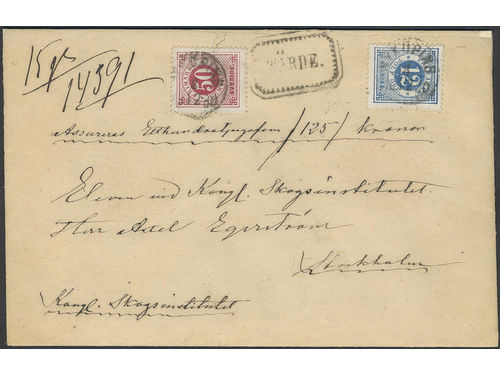 50
VÄRDE.
12
Assureras Etthundratjugofem /125/ kronor
Eleven vid Kongl. Skogsinstitutet.
Herr Axel Egerström
Stockholm
Kongl. Skogsinstitutet